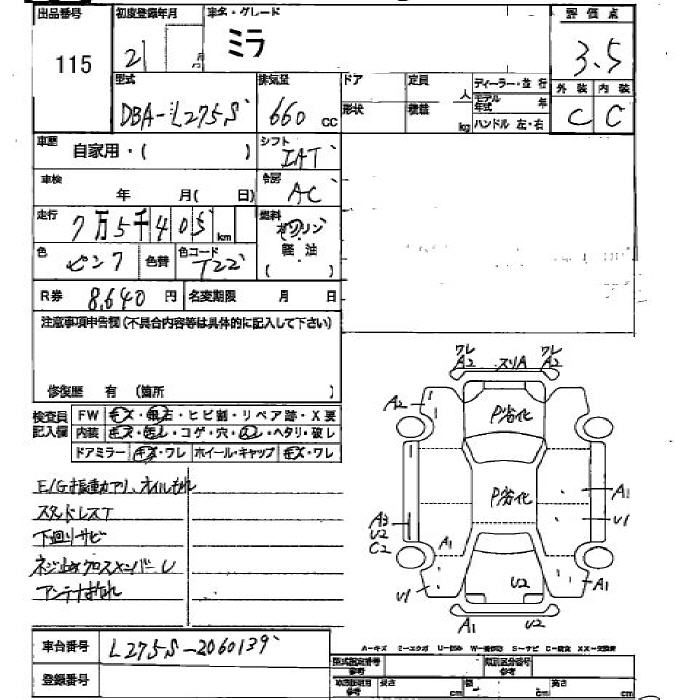 出品番号 初度登録年月 車名・グレード 評価点
115 21 月 ミラ 3.5
型式 排気量 ドア 定員 ディーラー・並行 外装 内装
DBA-L275S 660 cc 形状 積載 人 kg モデル年式 年 ハンドル 左・右 C C
車歴 自家用・( ) シフト IAT
車検 年 月( 日) 冷房 AC
走行 7万5千405 km 燃料 ガソリン 軽油 ( )
色 ピンク 色替 色コード T22
R券 8,640 円 名変期限 月 日
注意事項申告欄(不具合内容等は具体的に記入して下さい)
修復歴 有 (箇所 )
検査員記入欄 FW キズ・飛石・ヒビ割・リペア跡・X要
内装 キズ・汚レ・コゲ・穴・ ・ヘタリ・破レ
ドアミラー キズ・ワレ ホイール・キャップ キズ・ワレ
E/G振動アリ、オイルもれ
スタッドレスT
下廻りサビ
ネジ止めクロスメンバーU
アンテナおれ
ワレ A2 スリA ワレ A2
A2 P劣化
P劣化 A1
A3 U2 C2 U1
A1 U2 A1
U1
A1 U2
車台番号 L275S-2060139
登録番号
A-キズ U-凹み S-サビ C-腐食 XX-交換済
型式指定番号 参考 類別区分番号 参考
参考 長さ cm 幅 cm 高さ cm